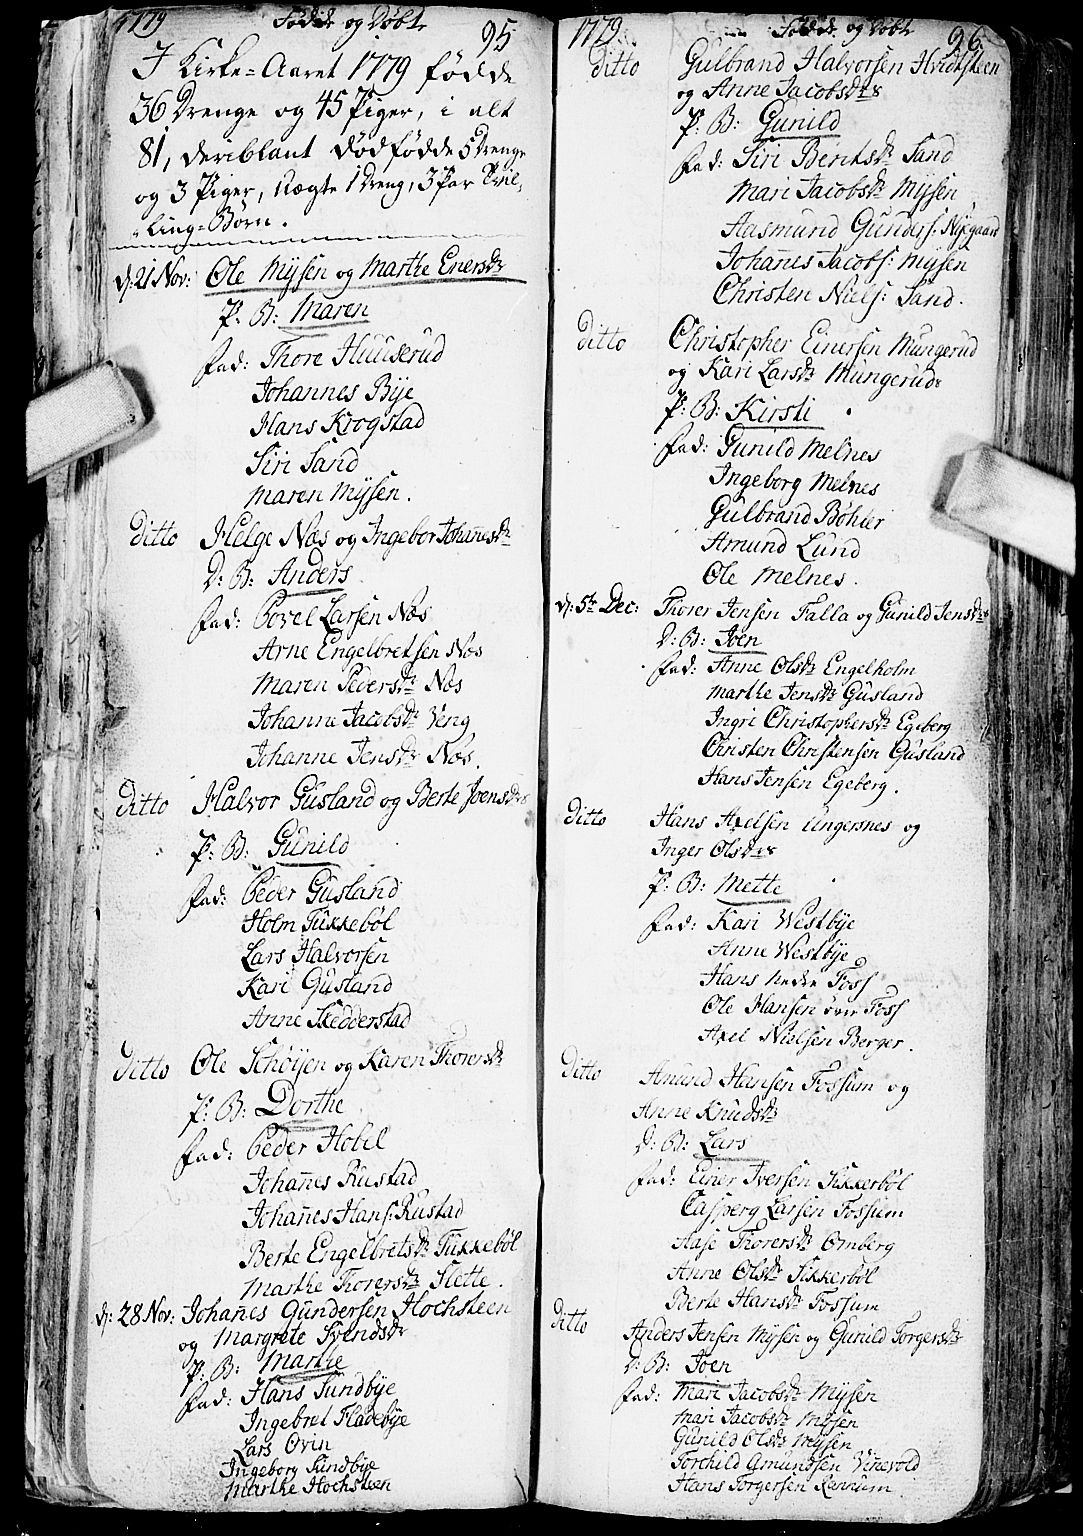 1779 Födde og Döbte 95
I Kirke=Aaret 1779 födde
36 Drenge og 45 Piger, i alt
81, deriblant dödfödde 5 Drenge
og 3 Piger, uægte 1 Dreng, 3 Par Tvil„
„ling=Börn.
d: 21 Nov: Ole Mÿsen og Marthe Enersdr
P: B: Maren
fad: Thore Huuserud
Johannes Bÿe
Hans Krogstad
Siri Sand
Maren Mÿsen.
ditto Helge Næs og Ingebor Johañesdr
D: B: Anders
fad: Povel Larsen Næs
Arne Engelbretsen Næs
Maren Pedersdr Næs
Johanne Jacobsdr Veng
Johanne Jensdr Næs.
ditto Halvor Gusland og Berte Joensdr
P: B: Gunild
fad: Peder Gusland
Holm Tukkeböl
Lars Halvorsen
Kari Gusland
Anne Skedderstad
ditto Ole Schöÿen og Karen Thorersdr
P: B: Dorthe
fad: Peder Hobel
Johañes Rustad
Johañes Hans: Rustad
Berte Engelbretsdr Tukkeböl
Marthe Thorersdr Slette.
d: 28 Nov: Johañes Gundersen Hochsteen
og Margrete Svendsdr
P: B: Marthe
fad: Hans Sundbÿe
Ingebret Fladebÿe
Lars Ovin
Ingeborg Sundbÿe
Marthe Hochsteen
1779 Födde og Döbte 96
ditto Gulbrand Halvorsen Hvidtsteen
og Anne Jacobsdr
P: B: Gunild
fad: Siri Bentsdr Sand
Mari Jacobsdr Mÿsen
Aasmund Gunders: Nÿegaard
Johañes Jacobs: Mÿsen
Christen Niels: Sand.
ditto Christopher Einersen Mungerud
og Kari Larsdr Mungerud
P: B: Kirsti
fad: Gunild Melnes
Ingeborg Melnes
Gulbrand Böhler
Amund Lund
Ole Melnes.
d: 5te Dec: Thorer Jensen Falla og Gunild Jensdr
D: B: Joen
fad: Anne Olsdr Engelholm
Marthe Jensdr Gusland
Ingri Christophersdr Egeberg
Christen Christensen Gusland
Hans Jensen Egeberg.
ditto Hans Axelsen Ungersnes og
Inger Olsdr
P: B: Mette
fad: Kari Westbÿe
Anne Westbÿe
Hans nedre Foss
Ole Hansen övre Foss
Axel Nielsen Berger.
ditto Amund Hansen Fossum og
Anne Knudsdr
D: B: Lars
fad: Einer Iversen Sikkerböl
Casperg Larsen Fossum
Aase Thorersdr Omberg
Anne Olsdr Sikkerböl
Berte Hansdr Fossum
ditto Anders Jensen Mÿsen og Gunild Torgersdr
D: B: Joen
fad: Mari Jacobsdr Mÿsen
Mari Jacobsdr Mÿsen
Gunild Olsdr Mÿsen
Torchild Gmundsen Vinevold
Hans Torgersen Rannum.